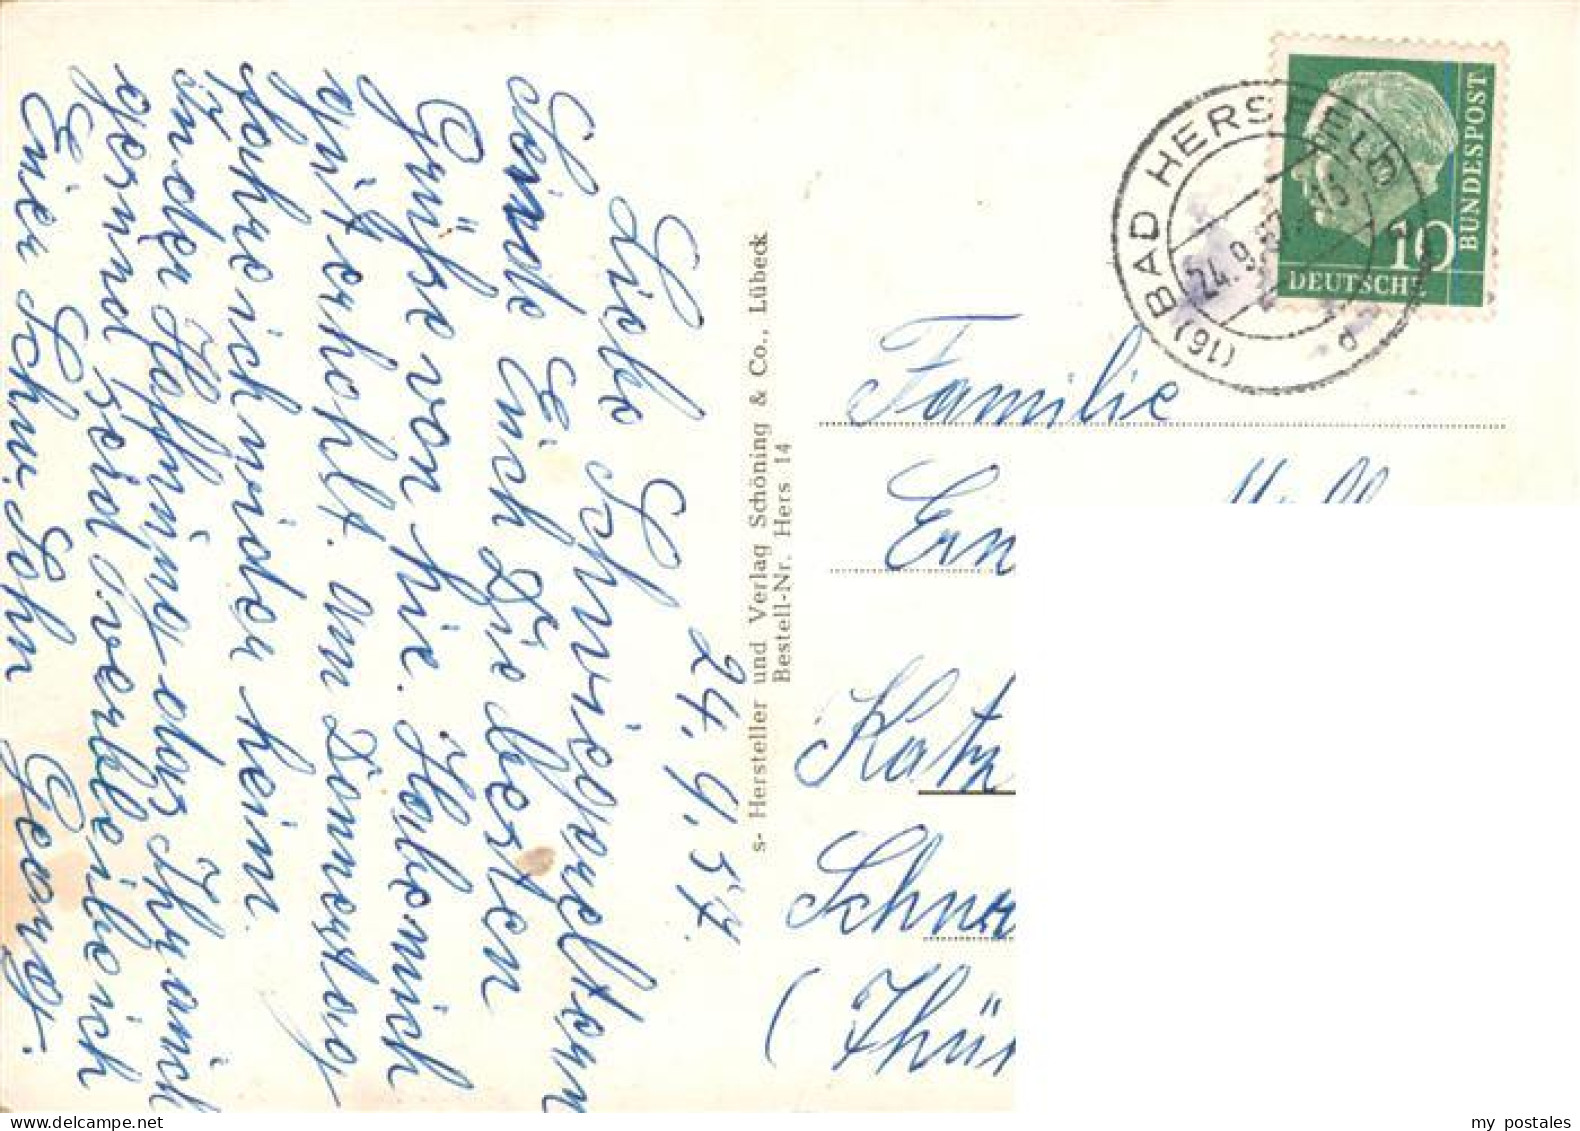 24.9.57.
Liebe Schwiegereltern
Sende Euch Die besten
Grüße von hir. Habe mich
gut erhohlt. am Donnerstag
fahre ich wider heim.
In der Hoffnung das Ihr auch
gesund seid verbleibe ich
Euer Schw. Sohn Georg.
s- Hersteller und Verlag Schöning & Co., Lübeck
Bestell-Nr. Hers 14
(16) BAD HERSFELD
24.9.57
d
BUNDESPOST
10
DEUTSCHE
Familie
Katz
(Thür
my postales